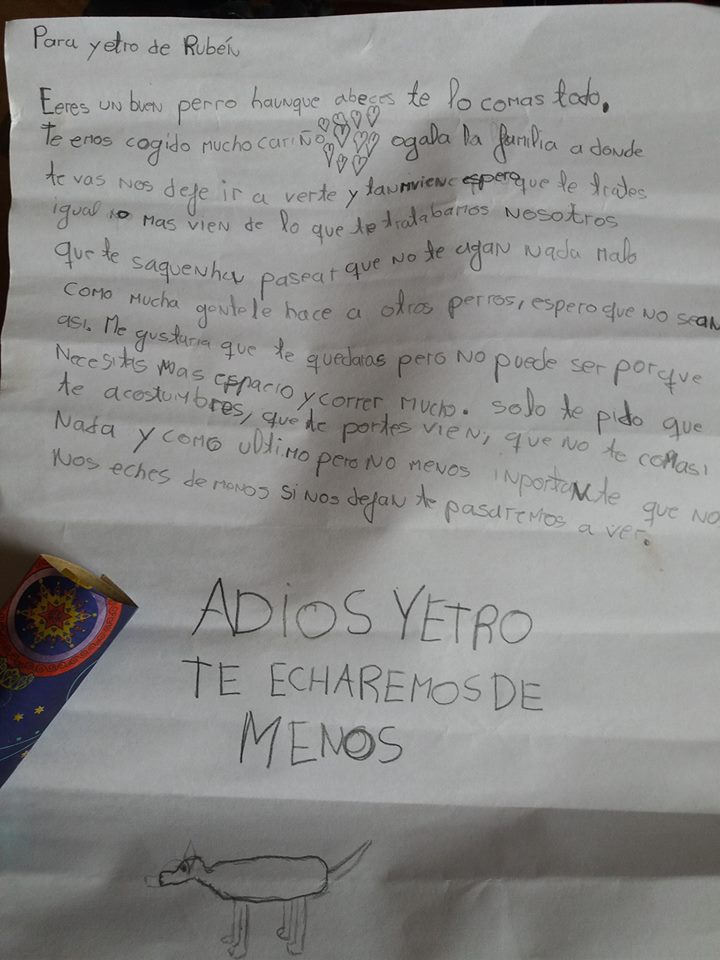 Para yetro de Rubén
Eeres un buen perro haunque abeces te lo comas todo.
te emos cogido mucho cariño ogala la familia a donde
te vas nos deje ir a verte y tanmviene espero que te traten
igual no mas vien de lo que te tratabamos nosotros
que te saquen ha pasear que no te agan nada malo
como mucha gente le hace a otros perros, espero que no sean
asi. Me gustaria que te quedaras pero no puede ser porque
Necesitas mas espacio y correr mucho. solo te pido que
te acostumbres, que te portes vien, que no te comas
Nada y como ultimo pero no menos inportante que no
Nos eches de menos si nos dejan te pasaremos a ver.
ADIOS YETRO
TE ECHAREMOS DE
MENOS